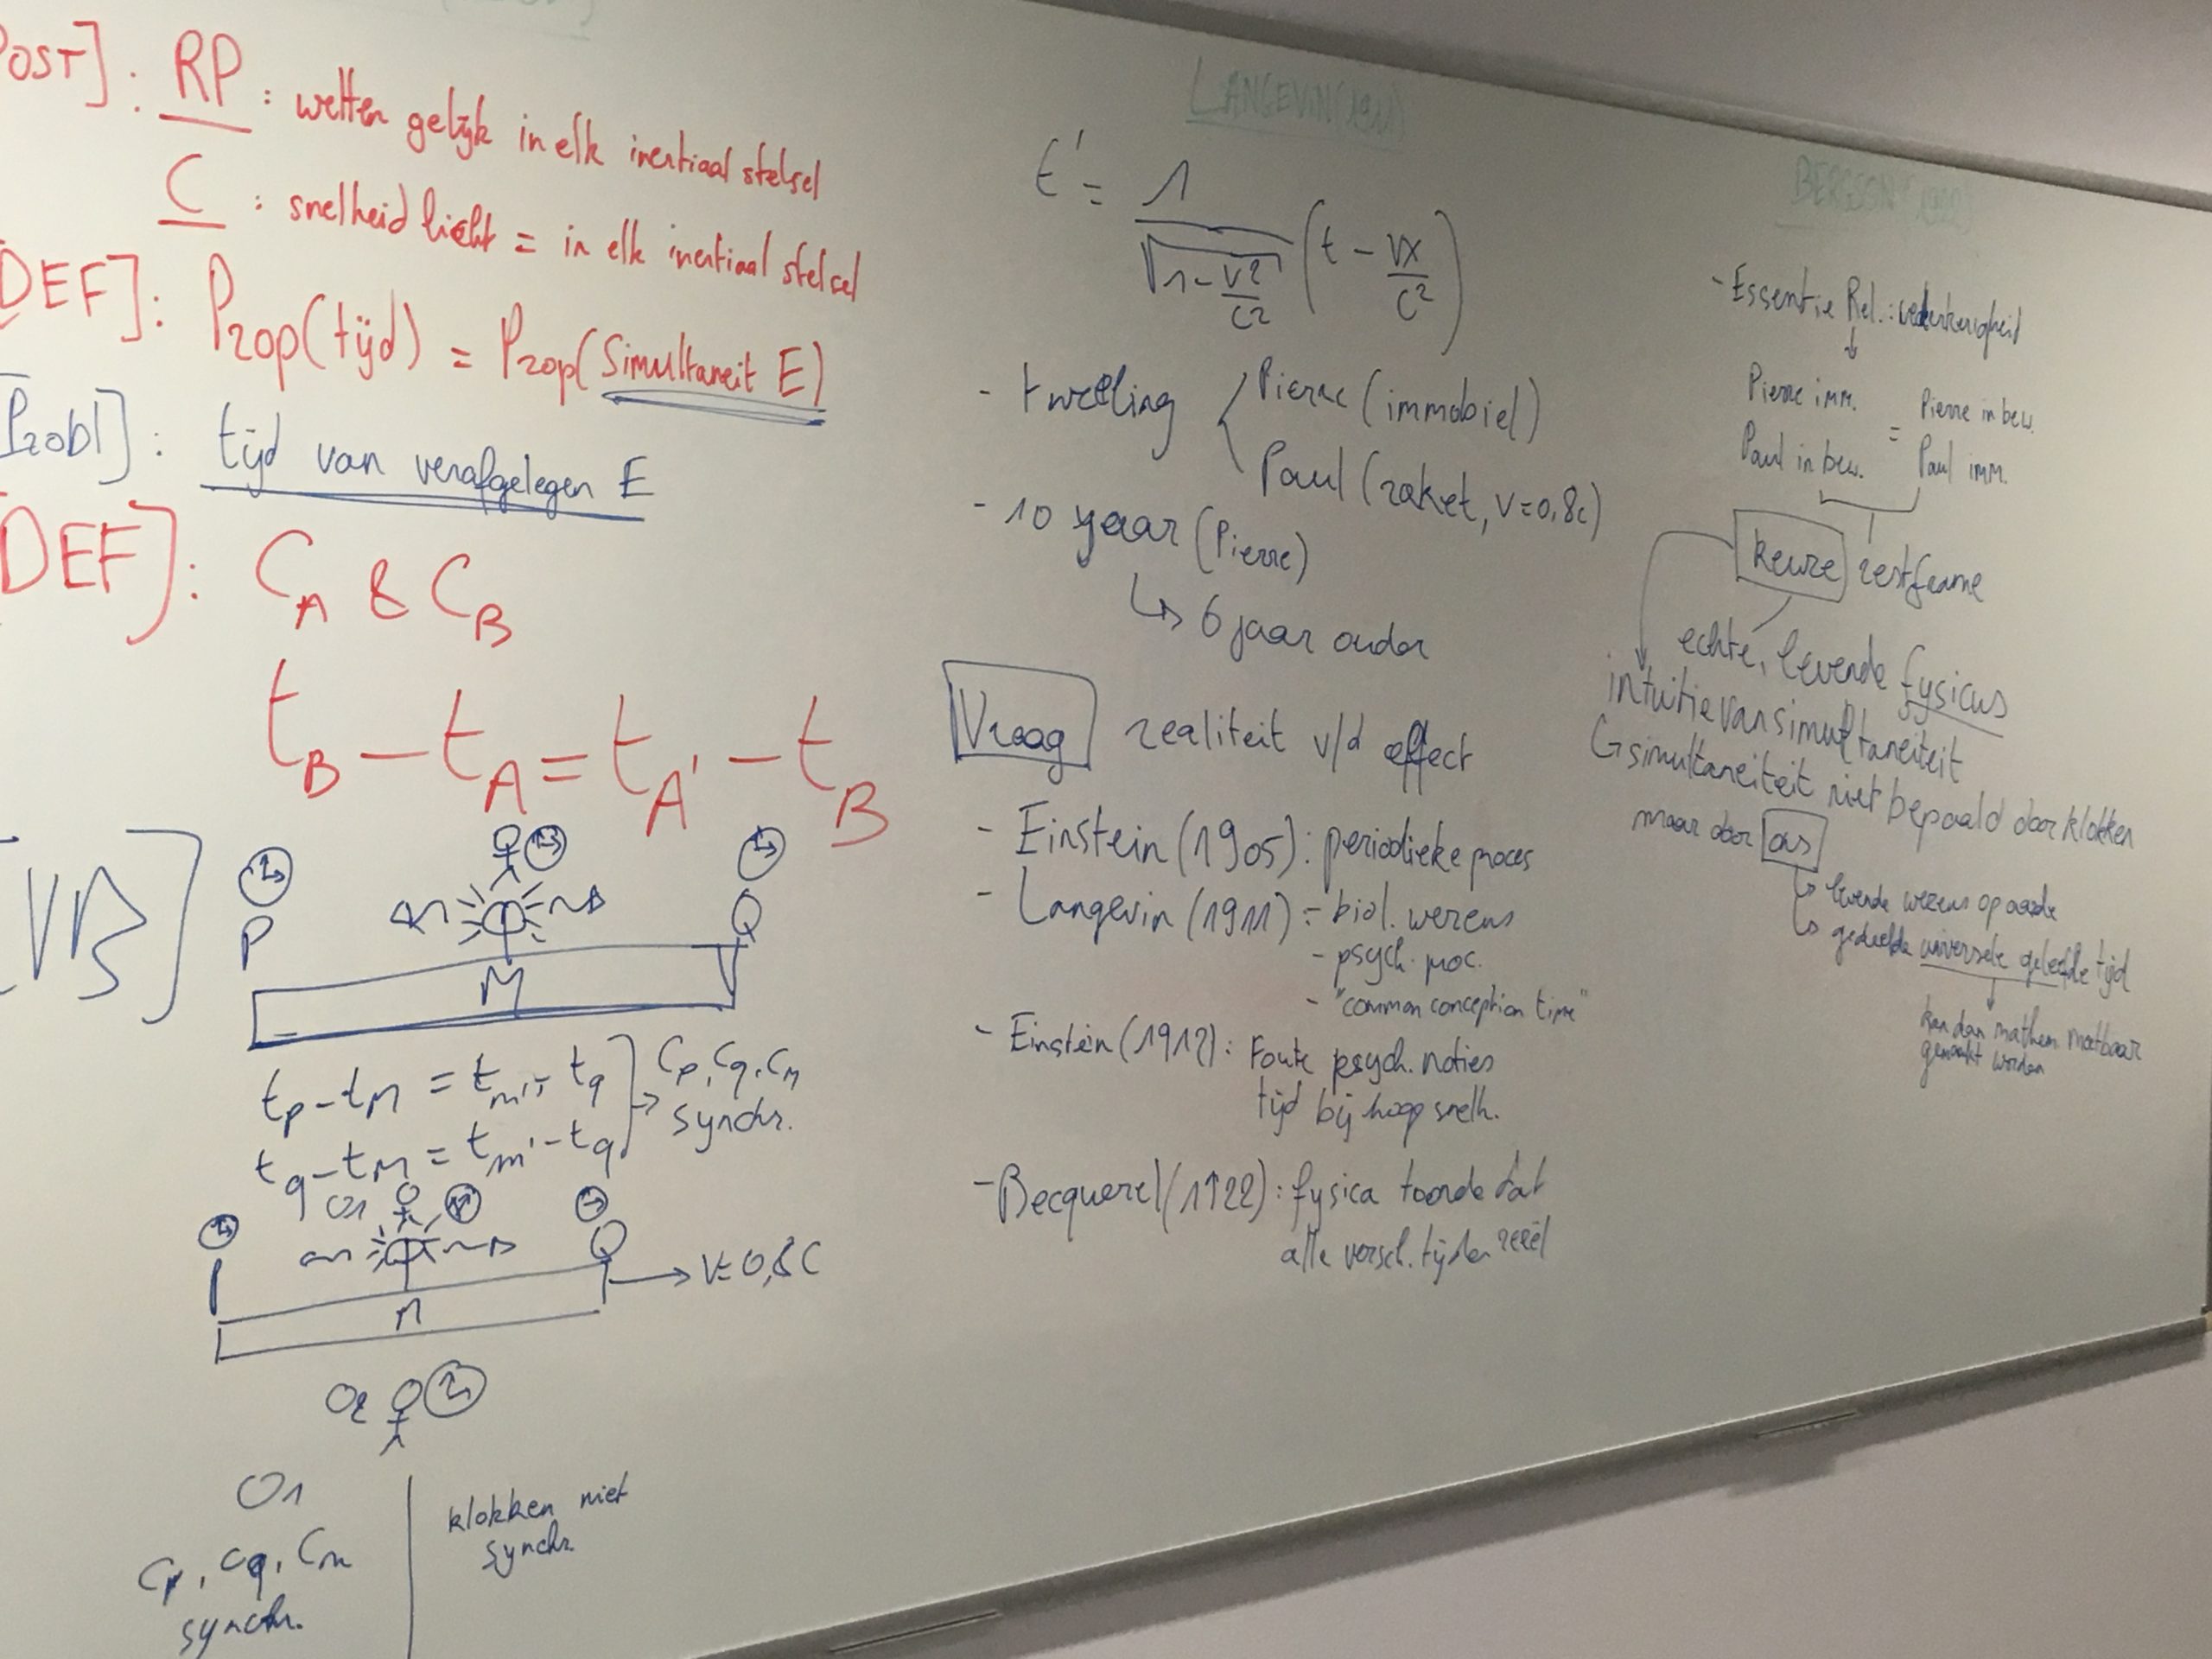 OST]: RP : wetten gelijk in elk inertiaal stelsel
C : snelheid licht = in elk inertiaal stelsel
DEF]: Prop(tijd) = Prop(Simultaneit E)
Probl]: tijd van verafgelegen E
DEF]: C_A & C_B
t_B - t_A = t_A' - t_B
VB]
P
Q
M
t_p - t_M = t_m' - t_q
t_q - t_M = t_m' - t_q
C_p, C_q, C_M
synchr.
O1
Q
V=0,8C
M
O2
O1
C_p, C_q, C_m
synchr.
klokken niet
synchr.
LANGEVIN (1911)
t' = 1 / √(1 - v²/c²) (t - vx/c²)
- tweeling
Pierre (immobiel)
Paul (raket, v=0,8c)
- 10 jaar (Pierre)
↳ 6 jaar ouder
Vraag realiteit v/d effect
- Einstein (1905): periodieke proces
- Langevin (1911): - biol. wezens
- psych. proc.
- "common conception time"
- Einstein (1912): Foute psych. noties
tijd bij hoge snelh.
- Becquerel (1922): fysica toonde dat
alle versch. tijden reëel
BERGSON (1922)
- Essentie Rel.: wederkerigheid
↓
Pierre imm. = Pierre in bew.
Paul in bew. Paul imm.
keuze restframe
echte, levende fysicus
intuitie van simultaneiteit
↳ simultaneiteit niet bepaald door klokken
maar door ons
↳ levende wezens op aarde
↳ gedeelde universele geleefde tijd
↓
kan dan mathem. meetbaar
gemaakt worden